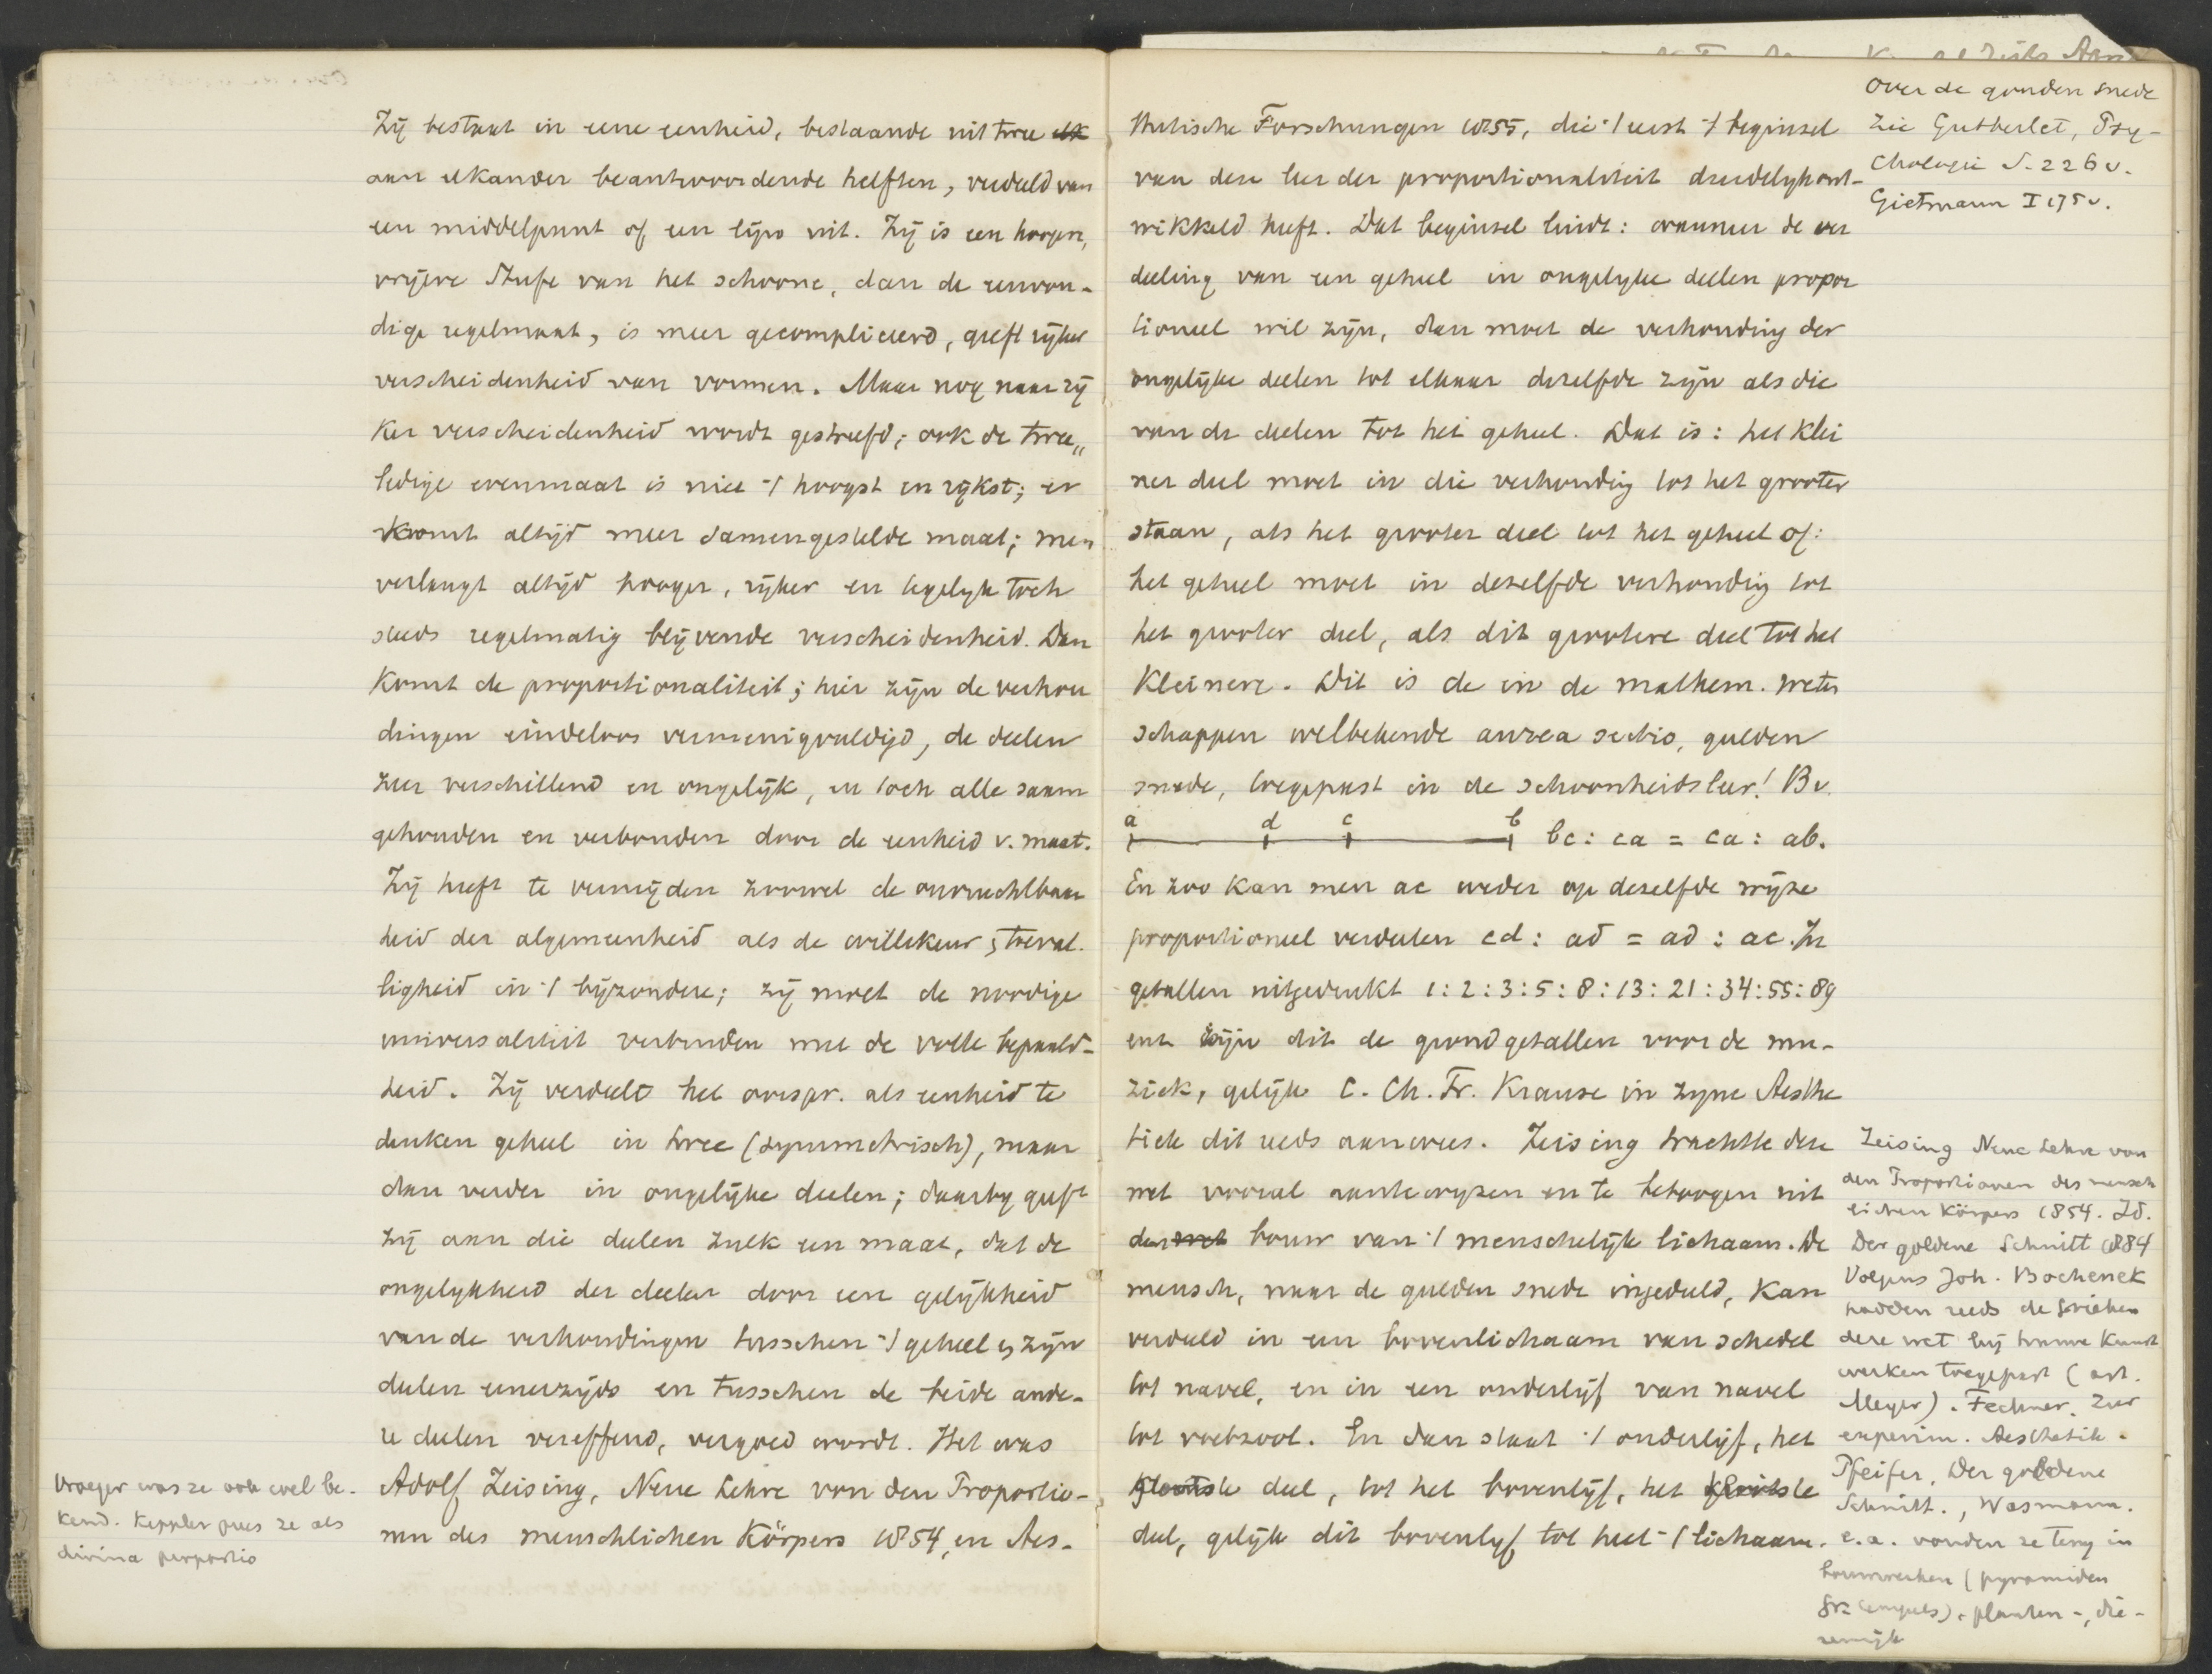 Zij bestaat in eene eenheid, bestaande uit twee elk
aan elkander beantwoordende helften, verdeeld van
een middelpunt of een lijn uit. Zij is een hooger,
vrijere Stufe van het schoone, dan de eenvou-
dige regelmaat, is meer gecompliceerd, geeft rijker
verscheidenheid van vormen. Maar nog naar rij
ker verscheidenheid wordt gestreefd; ook de twee„
ledige evenmaat is niet 't hoogst en rijkst; er
komt altijd meer samengestelde maat; men
verlangt altijd hooger, rijker en tegelyk toch
steeds regelmatig blijvende verscheidenheid. Dan
komt de proportionaliteit; hier zijn de verhou
dingen eindeloos vermenigvuldigd, de deelen
zeer verschillend en ongelijk, en toch alle saam
gehouden en verbonden door de eenheid v. maat.
Zij heeft te vermijden zoowel de onvruchtbaar
heid der algemeenheid als de willekeur, toeval-
ligheid in 't bijzondere; zij moet de noodige
universaliteit verbinden met de volle bepaald-
heid. Zij verdeelt het oorspr. als eenheid te
denken geheel in twee (symmetrisch), maar
dan verder in ongelijke deelen; daarby geeft
zij aan die deelen zulk een maat, dat de
ongelykheid der deelen door een gelijkheid
van de verhoudingen tusschen 't geheel en zijn
deelen eenerzijds en tusschen de beide ande-
re deelen vereffend, vergoed wordt. Het was
Adolf Zeising, Neue Lehre von den Proportio-
nen des menschlichen Körpers 1854, en Aes-
Vroeger was ze ook wel be-
kend. Keppler prees ze als
divina proportio
thetische Forschungen 1855, die 't eerst 't beginsel
van deze leer der proportionaliteit duidelyk ont-
wikkeld heeft. Dat beginsel luidt: wanneer de ver
deeling van een geheel in ongelyke deelen propor
tioneel wil zijn, dan moet de verhouding der
ongelijke deelen tot elkaar dezelfde zijn als die
van de deelen tot het geheel. Dat is: het klei
ner deel moet in die verhouding tot het grooter
staan, als het grooter deel tot het geheel of:
het geheel moet in dezelfde verhouding tot
het grooter deel, als dit grootere deel tot het
kleinere. Dit is de in de mathem. weten
schappen welbekende aurea sectio, gulden
snede, toegepast in de schoonheidsleer! Bv.
a d c b bc : ca = ca : ab.
En zoo kan men ac weder op dezelfde wijze
proportioneel verdeelen cd : ad = ad : ac. In
getallen uitgedrukt 1 : 2 : 3 : 5 : 8 : 13 : 21 : 34 : 55 : 89
enz. zijn dit de grondgetallen voor de mu-
ziek, gelijk C. Ch. Fr. Krause in zyne Aesthe
tiek dit reeds aanwees. Zeising trachtte deze
wet vooral aan te wyzen en te betoogen uit
den bouw van 't menschelijk lichaam. De
mensch, naar de gulden snede ingedeeld, kan
verdeeld in een bovenlichaam van schedel
tot navel, en in een onderlijf van navel
tot voetzool. En dan staat 't onderlijf, het
grootste deel, tot het bovenlijf, het kleinste
deel, gelijk dit bovenlyf tot heel 't lichaam.
Over de gouden snede
zie Gutberlet, Psy-
chologie S. 226 v.
Gietmann I 175 v.
Zeising Neue Lehre von
den Proportionen des mensch
lichen Körpers 1854. Id.
Der goldene Schnitt 1884
Volgens Joh. Bochenek
hadden reeds de Grieken
deze wet bij hunne kunst
werken toegepast (art.
Meyer). Fechner, Zur
experim. Aesthetik.
Pfeifer, Der goldene
Schnitt., Wasmann.
e.a. vonden ze terug in
bouwwerken (pyramiden
Gr. tempels), planten-, die-
renrijk